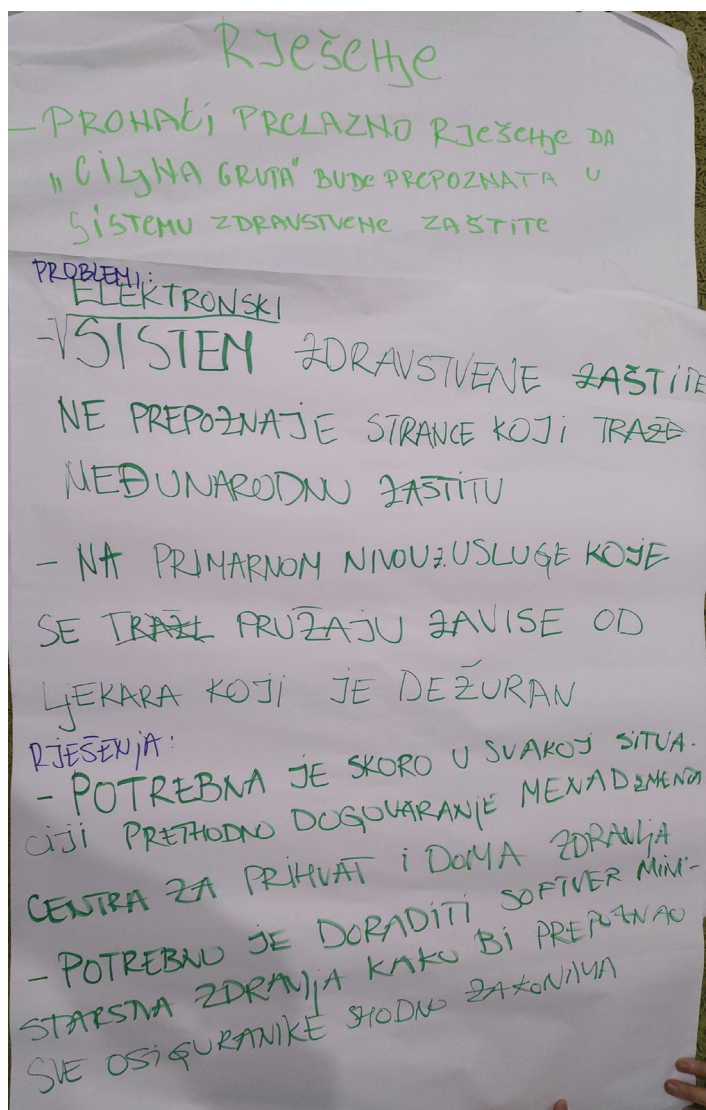 Rješenje
- PRONAĆI PRELAZNO Rješenje DA
„CILjNA GRUPA“ BUDE PREPOZNATA U
SISTEMU ZDRAVSTVENE ZAŠTITE
PROBLEMI:
ELEKTRONSKI
-√SISTEM ZDRAVSTVENE ZAŠTITE
NE PREPOZNAJE STRANCE KOJI TRAŽE
MEĐUNARODNU ZAŠTITU
- NA PRIMARNOM NIVOU ZZ USLUGE KOJE
SE TRAŽE PRUŽAJU ZAVISE OD
LJEKARA KOJI JE DEŽURAN
RJEŠENJA:
- POTREBNA JE SKORO U SVAKOJ SITUA-
CIJI PRETHODNO DOGOVARANJE MENADŽMENTA
CENTRA ZA PRIHVAT I DOMA ZDRAVLJA
- POTREBNO JE DORADITI SOFTVER MINI-
STARSTVA ZDRAVLJA KAKO BI PREPOZNAO
SVE OSIGURANIKE SHODNO ZAKONIMA